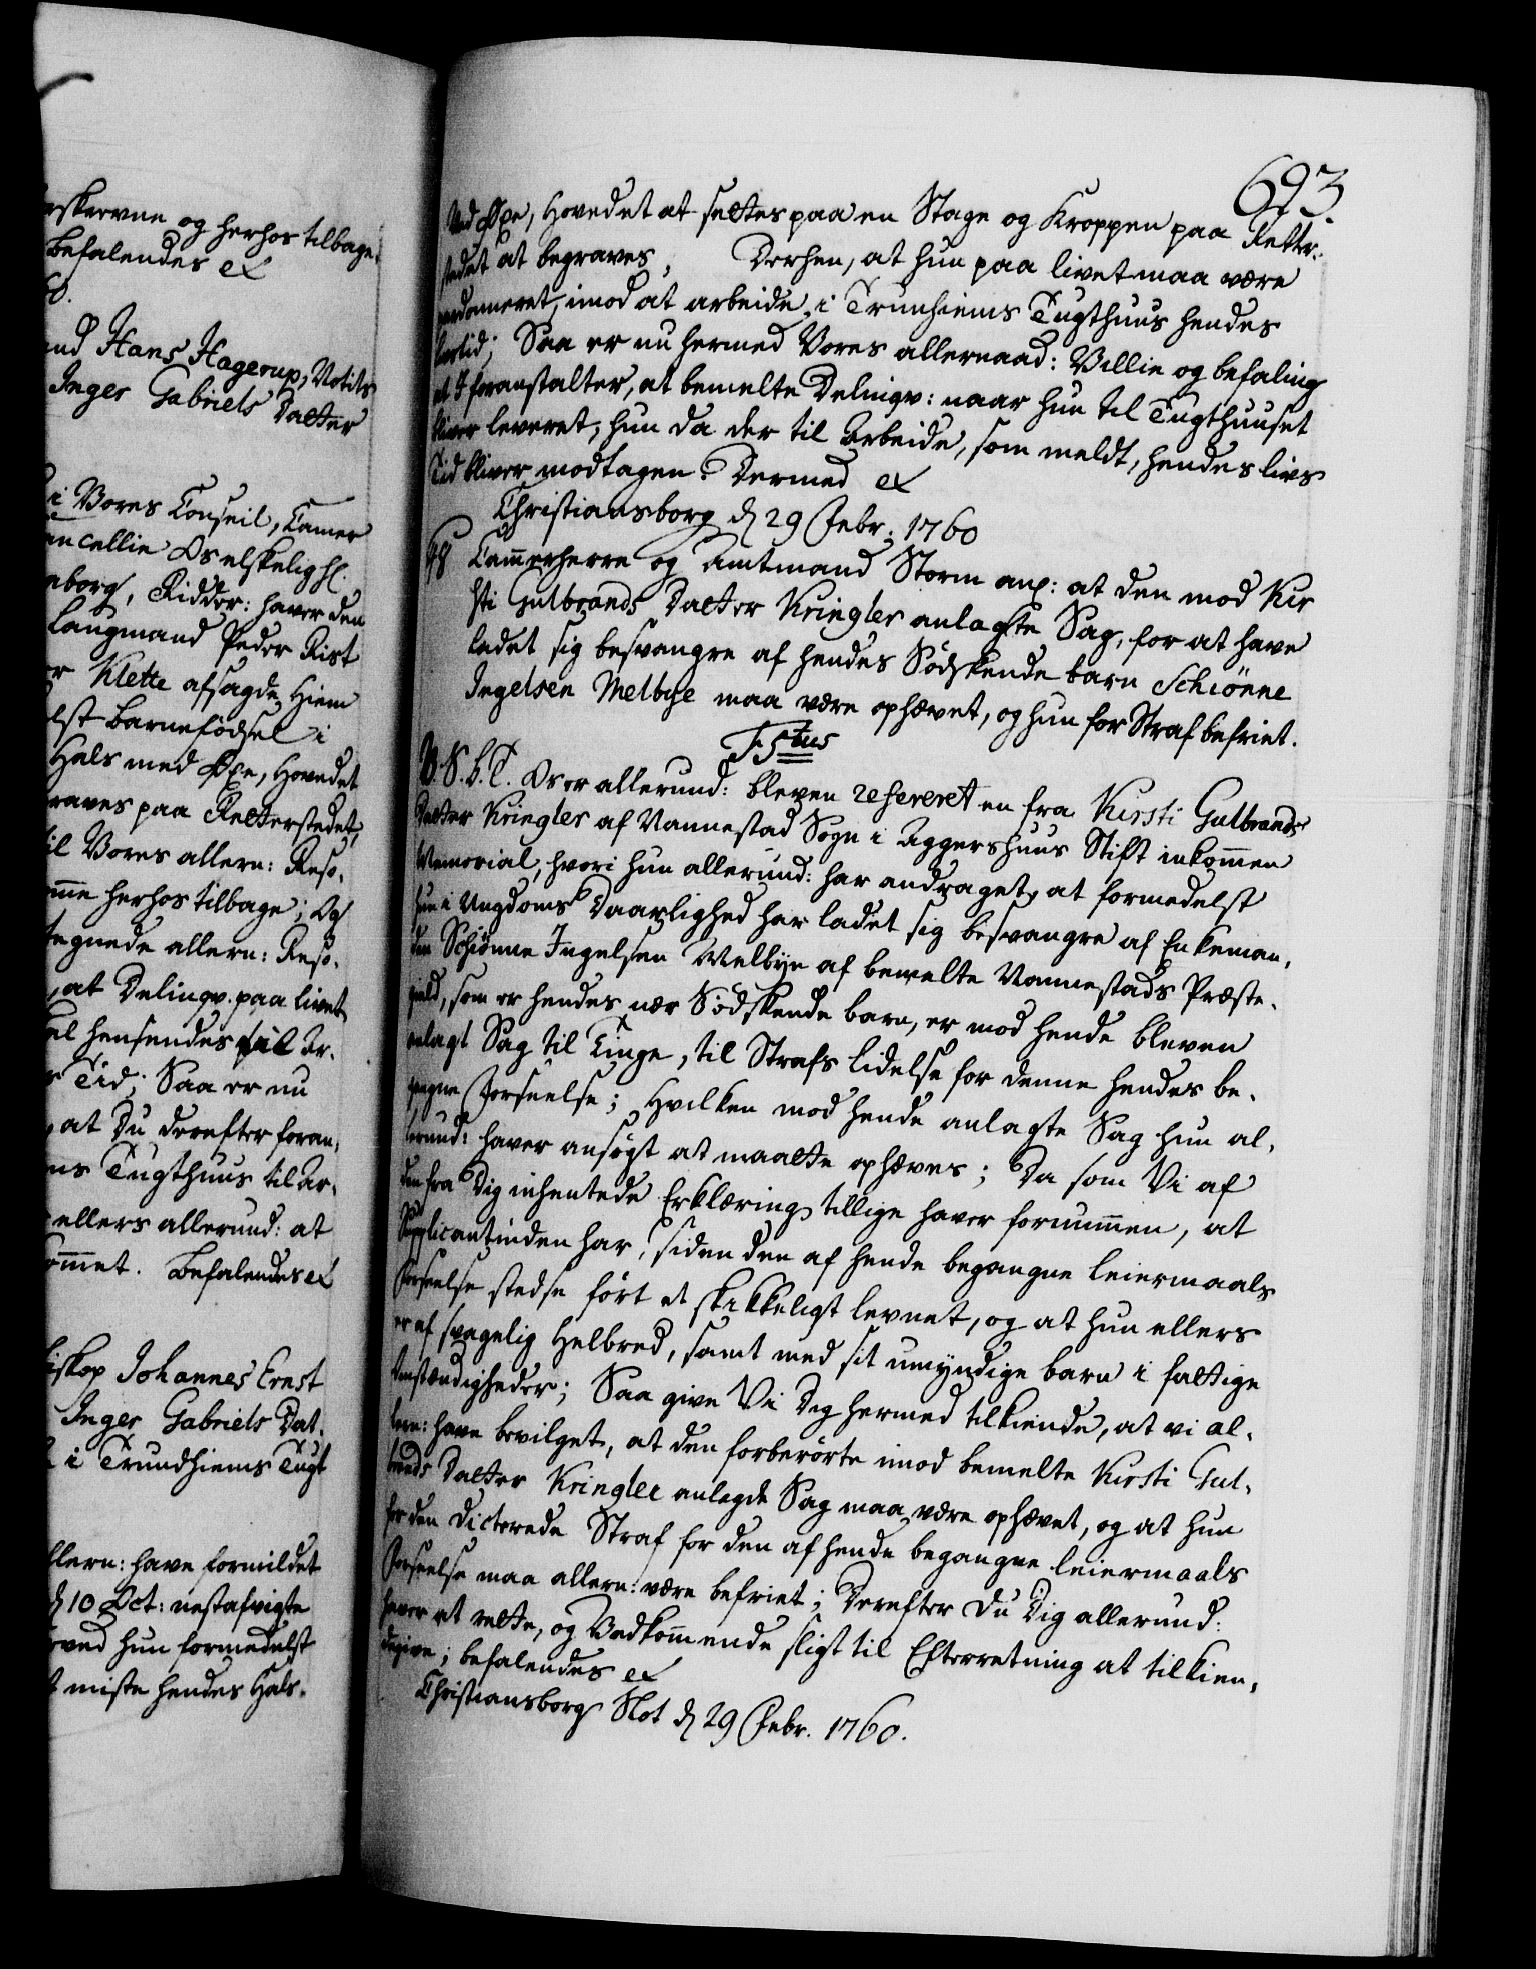 erskrevne og herhos tilbage.
Befalendes &
and Hans Hagerup, Notits
Inger Gabriels Datter
i Vores Conseil, Camer
ancellie Os elskelig H:
eborg, Ridder: haver den
Laugmand Peder Rist
er Klette afsagde Hiem
elst Barnefödsel i
Hals med Öxe, Hovedet
graves paa Retterstedet,
til Vores allern: Reso-
mme herhos tilbage; Og
tegnede allern: Reso-
, at Delinqv. paa livet
al hensendes til Ar-
s Tid; Saa er nu
, at Du derefter foran-
ms Tugthuus til Ar-
ellers allerund: at
ommet. Befalendes &
iskop Johannes Ernst
Inger Gabriels Dat-
i Trundhiems Tugt
llern: have formildet
d 10 Oct: nestafvigte
rved hun formedelst
t miste hendes Hals.
693.
Ved Öxe, Hovedet at settes paa en Stage og Kroppen paa Retter-
stedet at begraves, Derhen, at hun paa livet maa være
pardoneret, imod at arbeide i Trunhiems Tugthuus hendes
livstid; Saa er nu hermed Vores allernaad: Villie og befaling
at I foranstalter, at bemelte Delinqv: naar hun til Tugthuuset
bliver leveret, hun da der til Arbeide, som meldt, hendes livs
Tid bliver modtagen. Dermed &
Christiansborg d 29 Febr: 1760
48 Cammerherre og Amtmand Storm anl: at den mod Kir
sti Gulbrands Datter Kringler anlagte Sag, for at have
ladet sig besvangre af hendes Södskende barn Schiönne
Ingelsen Melbye maa være ophævet, og hun for Straf befriet.
F 5tus
V. S. G. T. Os er allerund: bleven refereret en fra Kirsti Gulbrands
Datter Kringler af Nannestad Sogn i Aggershuus Stift inkommen
Memorial, hvori hun allerund: har andraget, at formedelst
hun i Ungdoms Daarlighed har ladet sig besvangre af Enkeman-
den Schiönne Ingelsen Melbye af bemelte Nannestads Præste-
gield, som er hendes nær Södskende barn, er mod hende bleven
anlagt Sag til Tinge, til Strafs lidelse for denne hendes be-
gangne Forseelse; Hvilken mod hende anlagte Sag hun al-
lerund: haver ansögt at maatte ophæves; Da som Vi af
den fra Dig inhentede Erklæring tillige haver fornummen, at
Supplicantinden har, siden den af hende begangne Leiermaals
Forseelse stedse fört et skikkeligt levnet, og at hun ellers
er af svagelig Helbred, samt med sit umyndige barn i fattige
Omstændigheder; Saa give Vi Dig hermed tilkiende, at vi al-
lern: have bevilget, at den forberörte imod bemelte Kirsti Gul-
brands Datter Kringler anlagde Sag maa være ophævet, og at hun
for den dicterede Straf for den af hende begangne leiermaals
Forseelse maa allern: være befriet; Derefter Du Dig allerund:
haver at rette, og Vedkommende sligt til Efterretning at tilkien-
degive; befalendes &
Christiansborg Slot d 29 Febr. 1760.